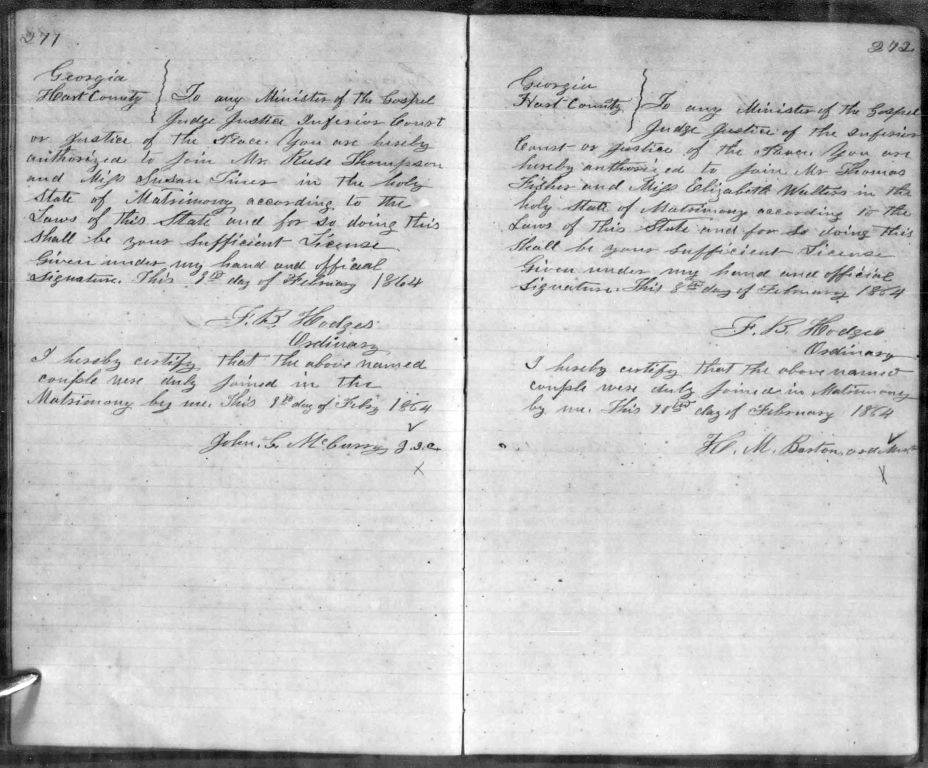 271
Georgia
Hart County } To any Minister of the Gospel
Judge Justice Inferior Court
or Justice of the Peace. You are hereby
authorized to join Mr. Thompson
and Miss Susan in the holy
State of Matrimony according to the
Laws of this State and for so doing this
Shall be your Sufficient License
Given under my hand and official
Signature. This day of February 1864
F. B. Hodges
Ordinary
I hereby certify that the above named
couple were duly joined in the
Matrimony by me. This day of 1864
John G. McCurry J.I.C.
272
Georgia
Hart County } To any Minister of the Gospel
Judge Justice of the inferior
Court or Justice of the Peace. You are
hereby authorized to join Mr Thomas
Fisher and Miss Elizabeth Walters in the
holy State of Matrimony according to the
Laws of this State and for so doing this
Shall be your Sufficient License
Given under my hand and official
Signature. This 8th day of February 1864
F. B. Hodges
Ordinary
I hereby certify that the above named
couple were duly joined in Matrimony
by me. This day of February 1864
H. M. Barton